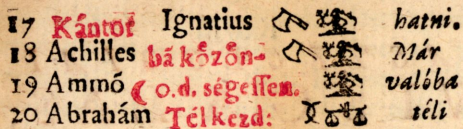 17 Kántor Ignatius hatni.
18 Achilles bá kőzőn- Már
19 Ammő o.d. ségeſſen. valóba
20 Abrahám Tél kezd: téli